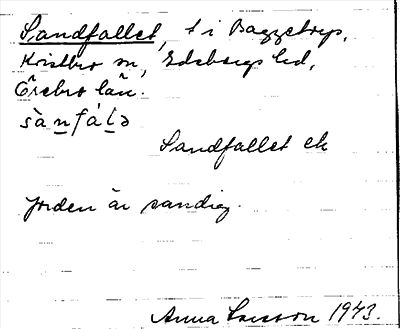 Sandfallet, t i Baggetorp,
Kvistbro sn, Edsbergs hd,
Örebro län.
sànfálə
Sandfallet ek
Jorden är sandig.
Anna Larsson 1943.